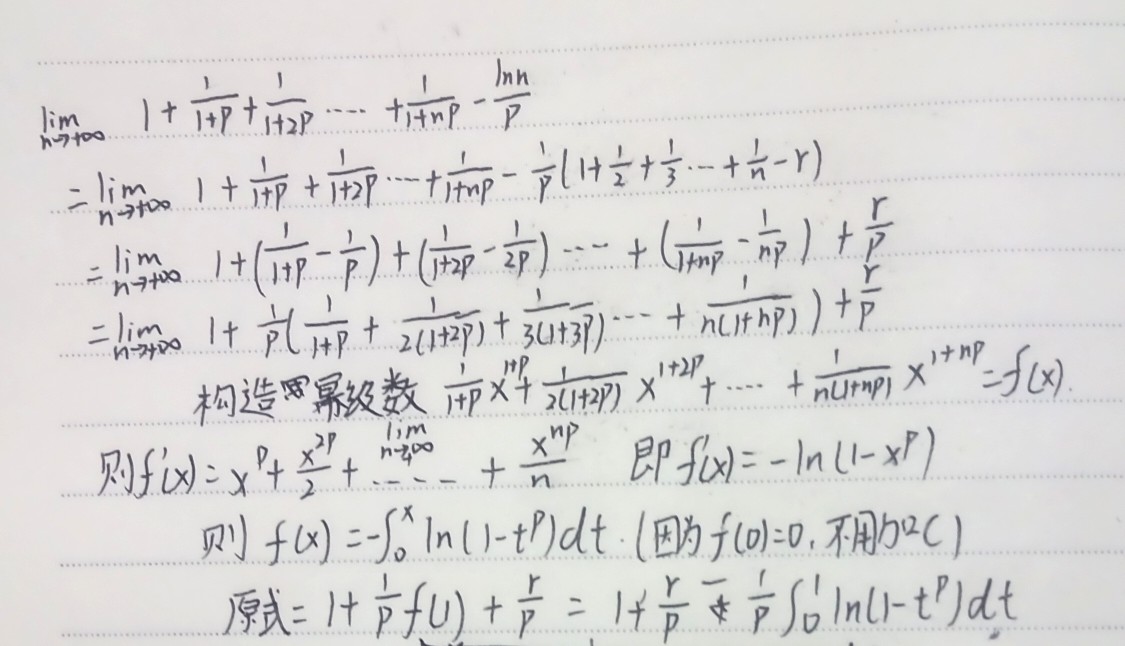 lim n→+∞ 1 + 1/(1+p) + 1/(1+2p) ···· + 1/(1+np) - lnn/p
= lim n→+∞ 1 + 1/(1+p) + 1/(1+2p) ···· + 1/(1+np) - 1/p (1 + 1/2 + 1/3 ··· + 1/n - r)
= lim n→+∞ 1 + (1/(1+p) - 1/p) + (1/(1+2p) - 1/2p) ···· + (1/(1+np) - 1/np) + r/p
= lim n→+∞ 1 + 1/p (1/(1+p) + 1/(2(1+2p)) + 1/(3(1+3p)) ···· + 1/(n(1+np))) + r/p
构造 幂级数 1/(1+p) x^(1+p) + 1/(2(1+2p)) x^(1+2p) + ···· + 1/(n(1+np)) x^(1+np) = f(x).
则f'(x) = x^p + x^(2p)/2 + lim n→+∞ ···· + x^(np)/n 即f'(x) = -ln(1-x^p)
则 f(x) = -∫₀ˣ ln(1-t^p)dt. (因为f(0)=0, 不用加C)
原式 = 1 + 1/p f(1) + r/p = 1 + r/p - 1/p ∫₀¹ ln(1-t^p)dt